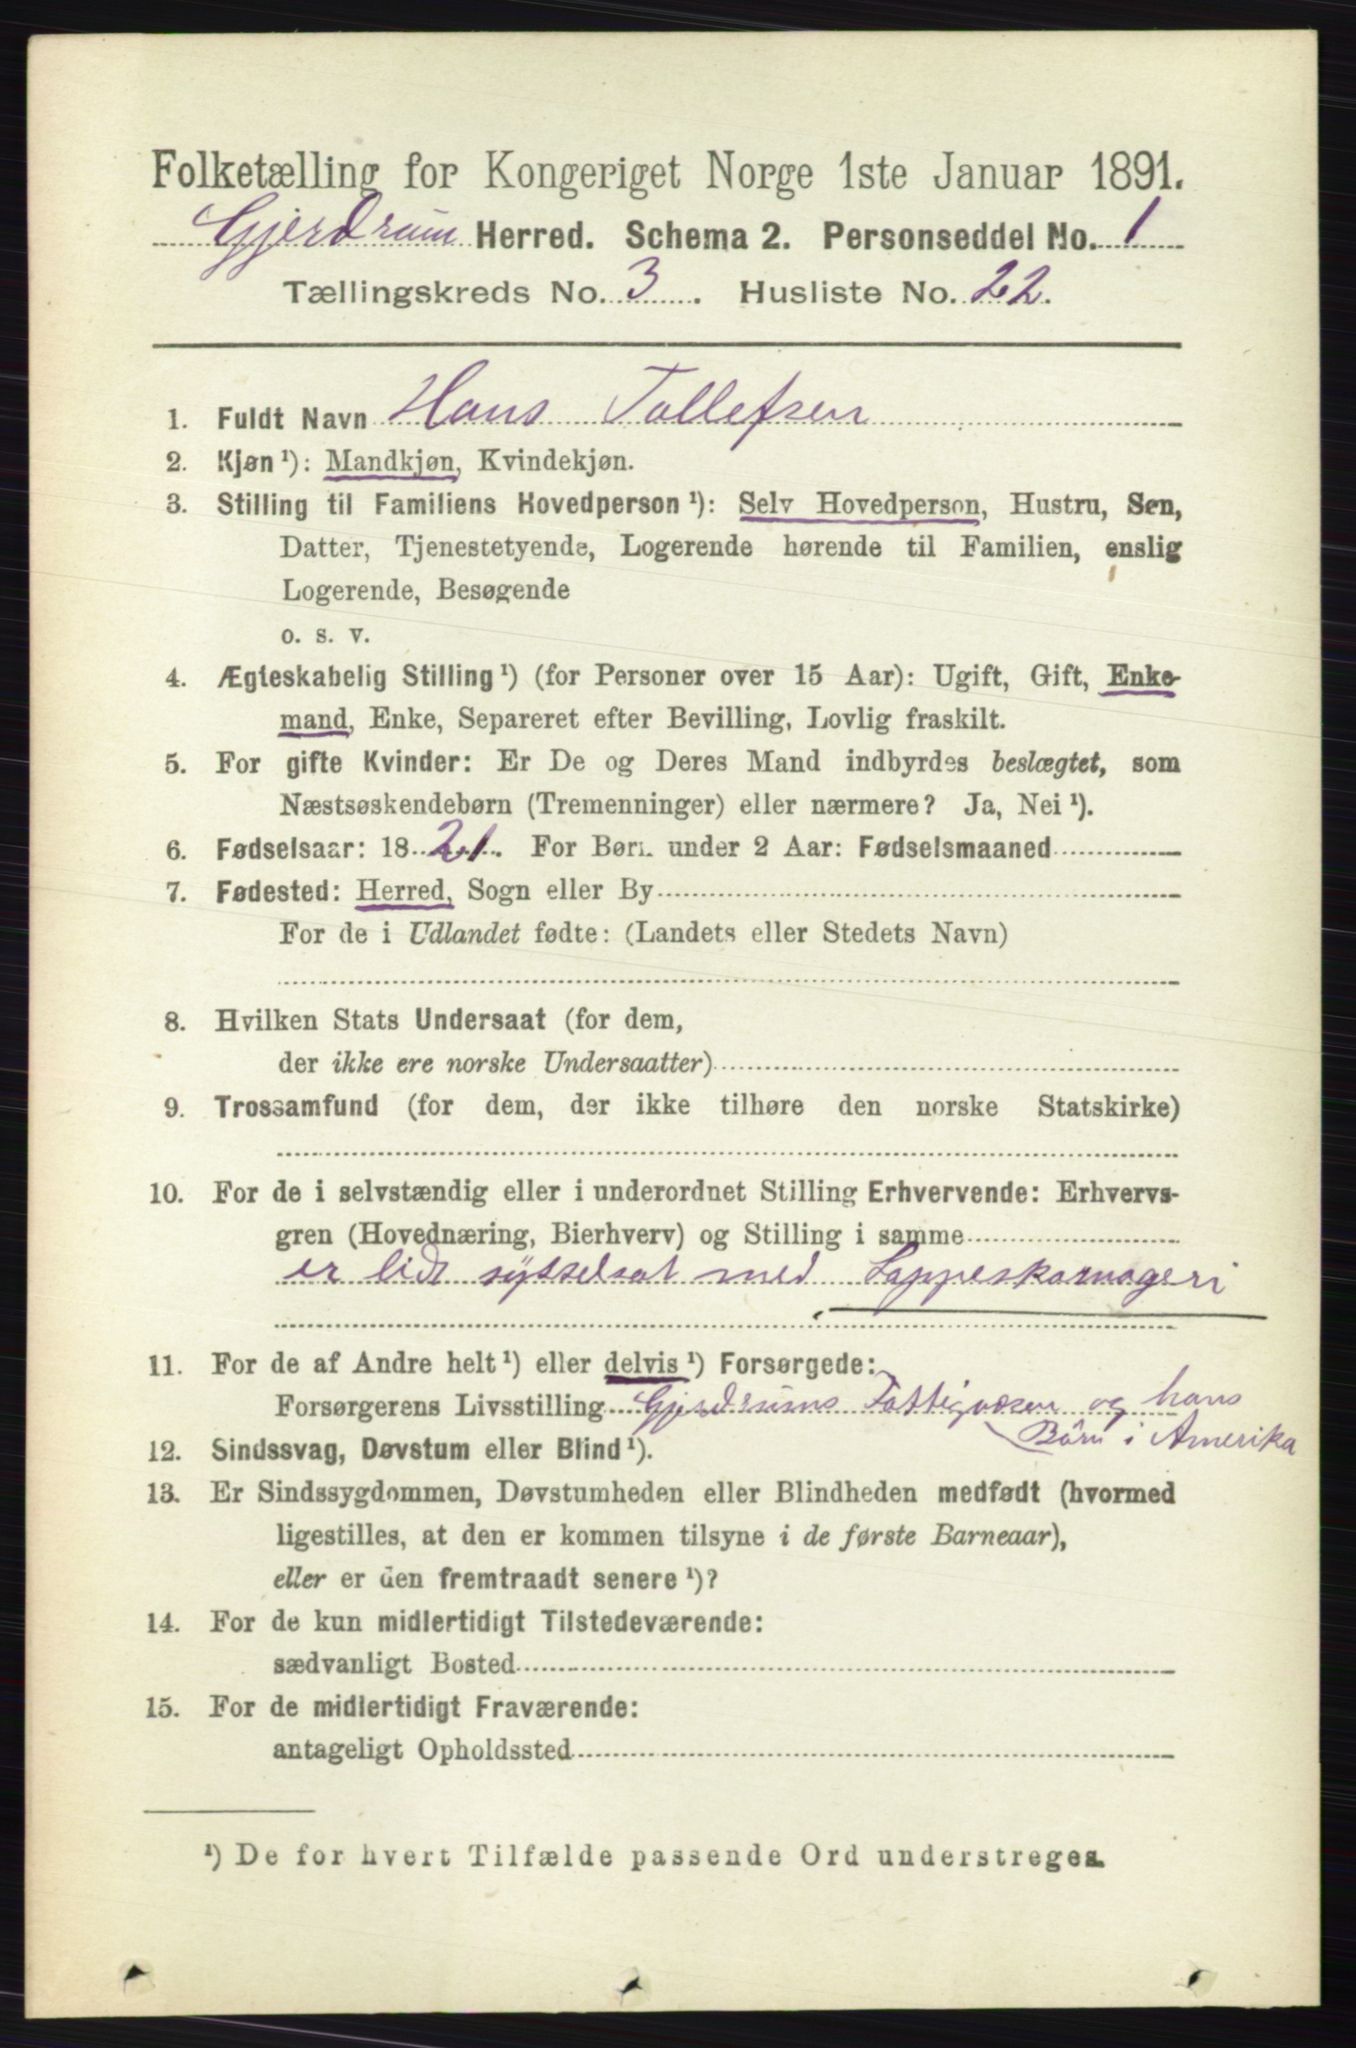 Folketælling for Kongeriget Norge 1ste Januar 1891.
Gjerdrum Herred. Schema 2. Personseddel No. 1
Tællingskreds No. 3. Husliste No. 22.
1. Fuldt Navn Hans Tollefsen
2. Kjøn ¹): Mandkjøn, Kvindekjøn.
3. Stilling til Familiens Hovedperson ¹): Selv Hovedperson, Hustru, Søn,
Datter, Tjenestetyende, Logerende hørende til Familien, enslig
Logerende, Besøgende
o. s. v.
4. Ægteskabelig Stilling ¹) (for Personer over 15 Aar): Ugift, Gift, Enke-
mand, Enke, Separeret efter Bevilling, Lovlig fraskilt.
5. For gifte Kvinder: Er De og Deres Mand indbyrdes beslægtet, som
Næstsøskendebørn (Tremenninger) eller nærmere? Ja, Nei ¹).
6. Fødselsaar: 1821. For Børn under 2 Aar: Fødselsmaaned
7. Fødested: Herred, Sogn eller By
For de i Udlandet fødte: (Landets eller Stedets Navn)
8. Hvilken Stats Undersaat (for dem,
der ikke ere norske Undersaatter)
9. Trossamfund (for dem, der ikke tilhøre den norske Statskirke)
10. For de i selvstændig eller i underordnet Stilling Erhvervende: Erhvervs-
gren (Hovednæring, Bierhverv) og Stilling i samme
er lidt sysselsat med Lappeskomageri
11. For de af Andre helt ¹) eller delvis ¹) Forsørgede:
Forsørgerens Livsstilling Gjerdrums Fattigvæsen og hans
Börn i Amerika
12. Sindssvag, Døvstum eller Blind ¹).
13. Er Sindssygdommen, Døvstumheden eller Blindheden medfødt (hvormed
ligestilles, at den er kommen tilsyne i de første Barneaar),
eller er den fremtraadt senere ¹)?
14. For de kun midlertidigt Tilstedeværende:
sædvanligt Bosted
15. For de midlertidigt Fraværende:
antageligt Opholdssted
¹) De for hvert Tilfælde passende Ord understreges.